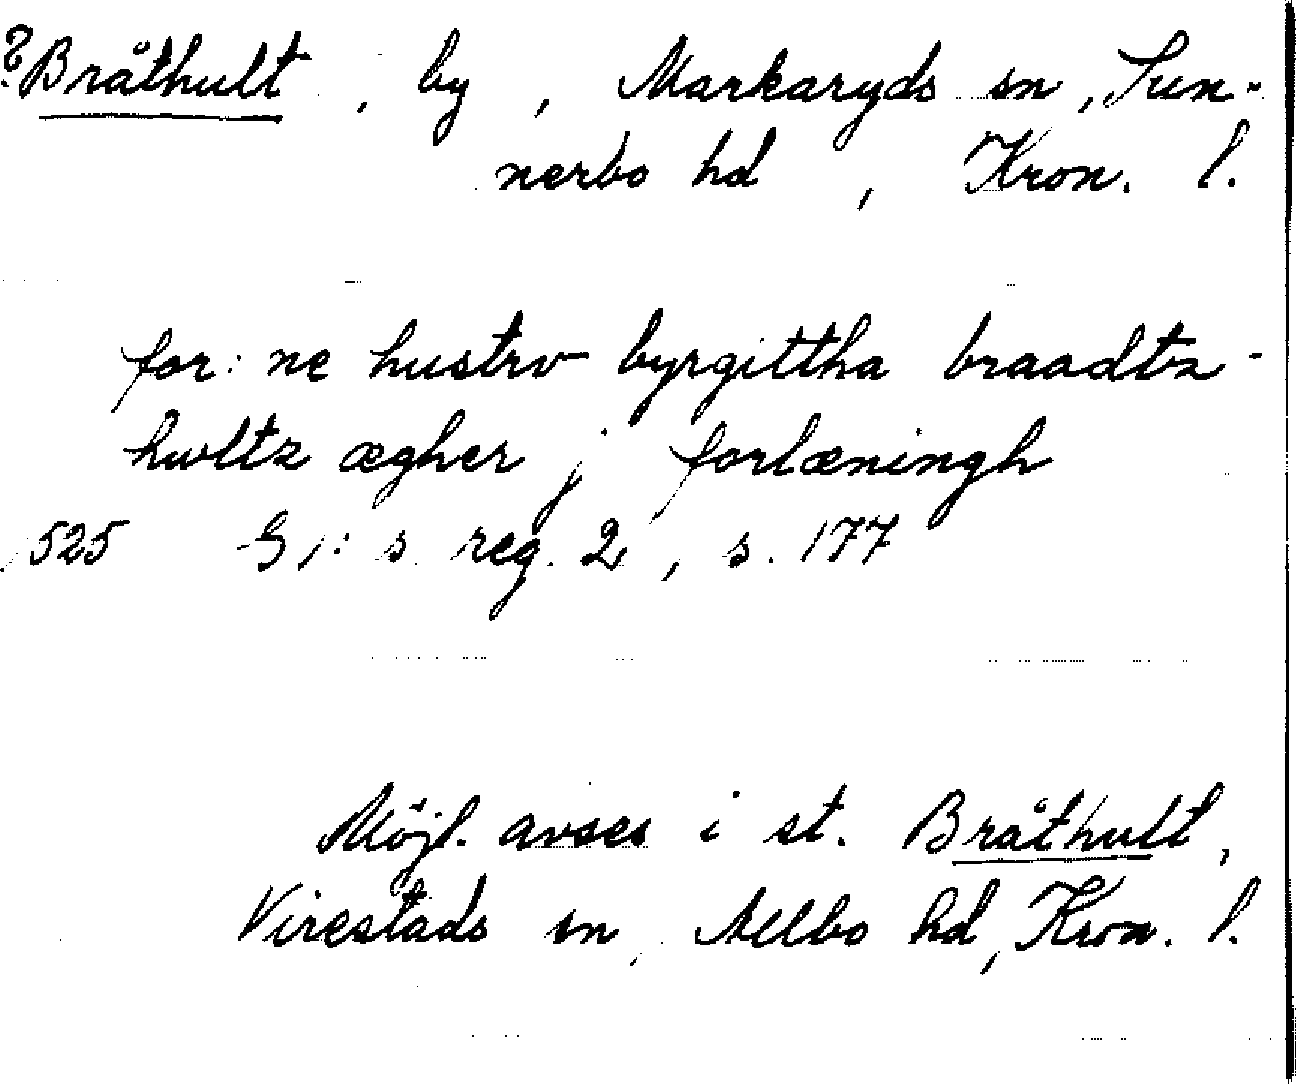 ? Bråthult, by, Markaryds sn, Sun-
nerbo hd, Kron. l.
for: ne hustrv byrgittha braadtz-
hwltz ægher j forlæningh
1525 G 1: s reg. 2, s. 177
Möjl. avses i st. Bråthult,
Virestads sn, Allbo hd, Kron. l.